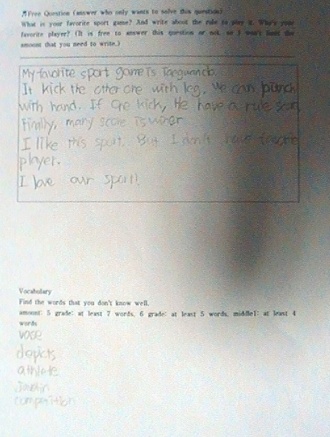 Free Question (answer who only wants to solve this question)
What is your favorite sport game? And write about the rule to play it. Who's your
favorite player? (It is free to answer this question or not, so I won't limit the
amount that you need to write.)
My favorite sport game is Taeguondo.
It kick the other one with leg, we can punch
with hand. If one kick, He have a rule score
Finally, many score is winer
I like this sport. But I don't have favorite
player.
I love our sport!
Vocabulary
Find the words that you don't know well.
amount: 5 grade: at least 7 words, 6 grade: at least 5 words, middle1: at least 4
words
vase
depicts
athlete
Javelin
competition